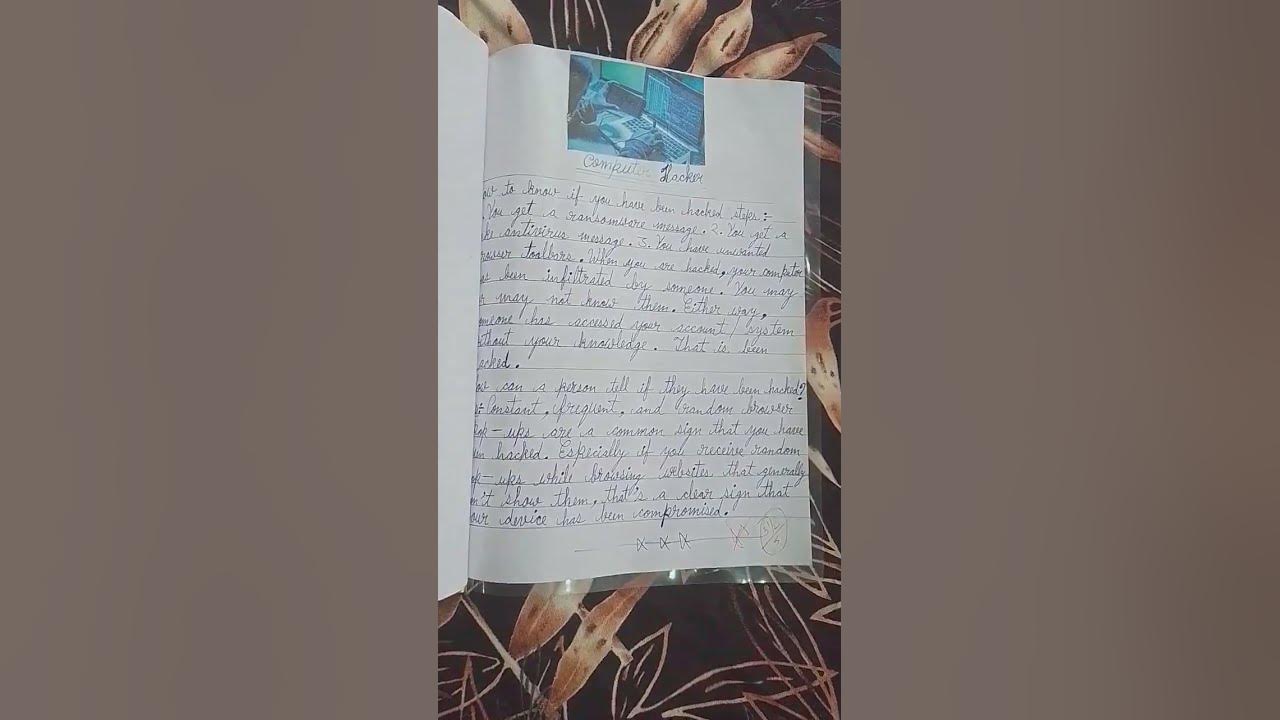 Computer Hacker
ow to know if you have been hacked steps :-
. You get a ransomware message. 2. You get a
ke antivirus message. 3. You have unwanted
rowser toolbars. When you are hacked, your computor
as been infiltrated by someone. You may
r may not know them. Either way,
omeone has accessed your account / system
ithout your knowledge. That is been
acked.
ow can a person tell if they have been hacked?
:- Constant, frequent, and random browser
op-ups are a common sign that you have
en hacked. Especially if you receive random
op-ups while browsing websites that generally
on't show them, that's a clear sign that
our device has been compromised.